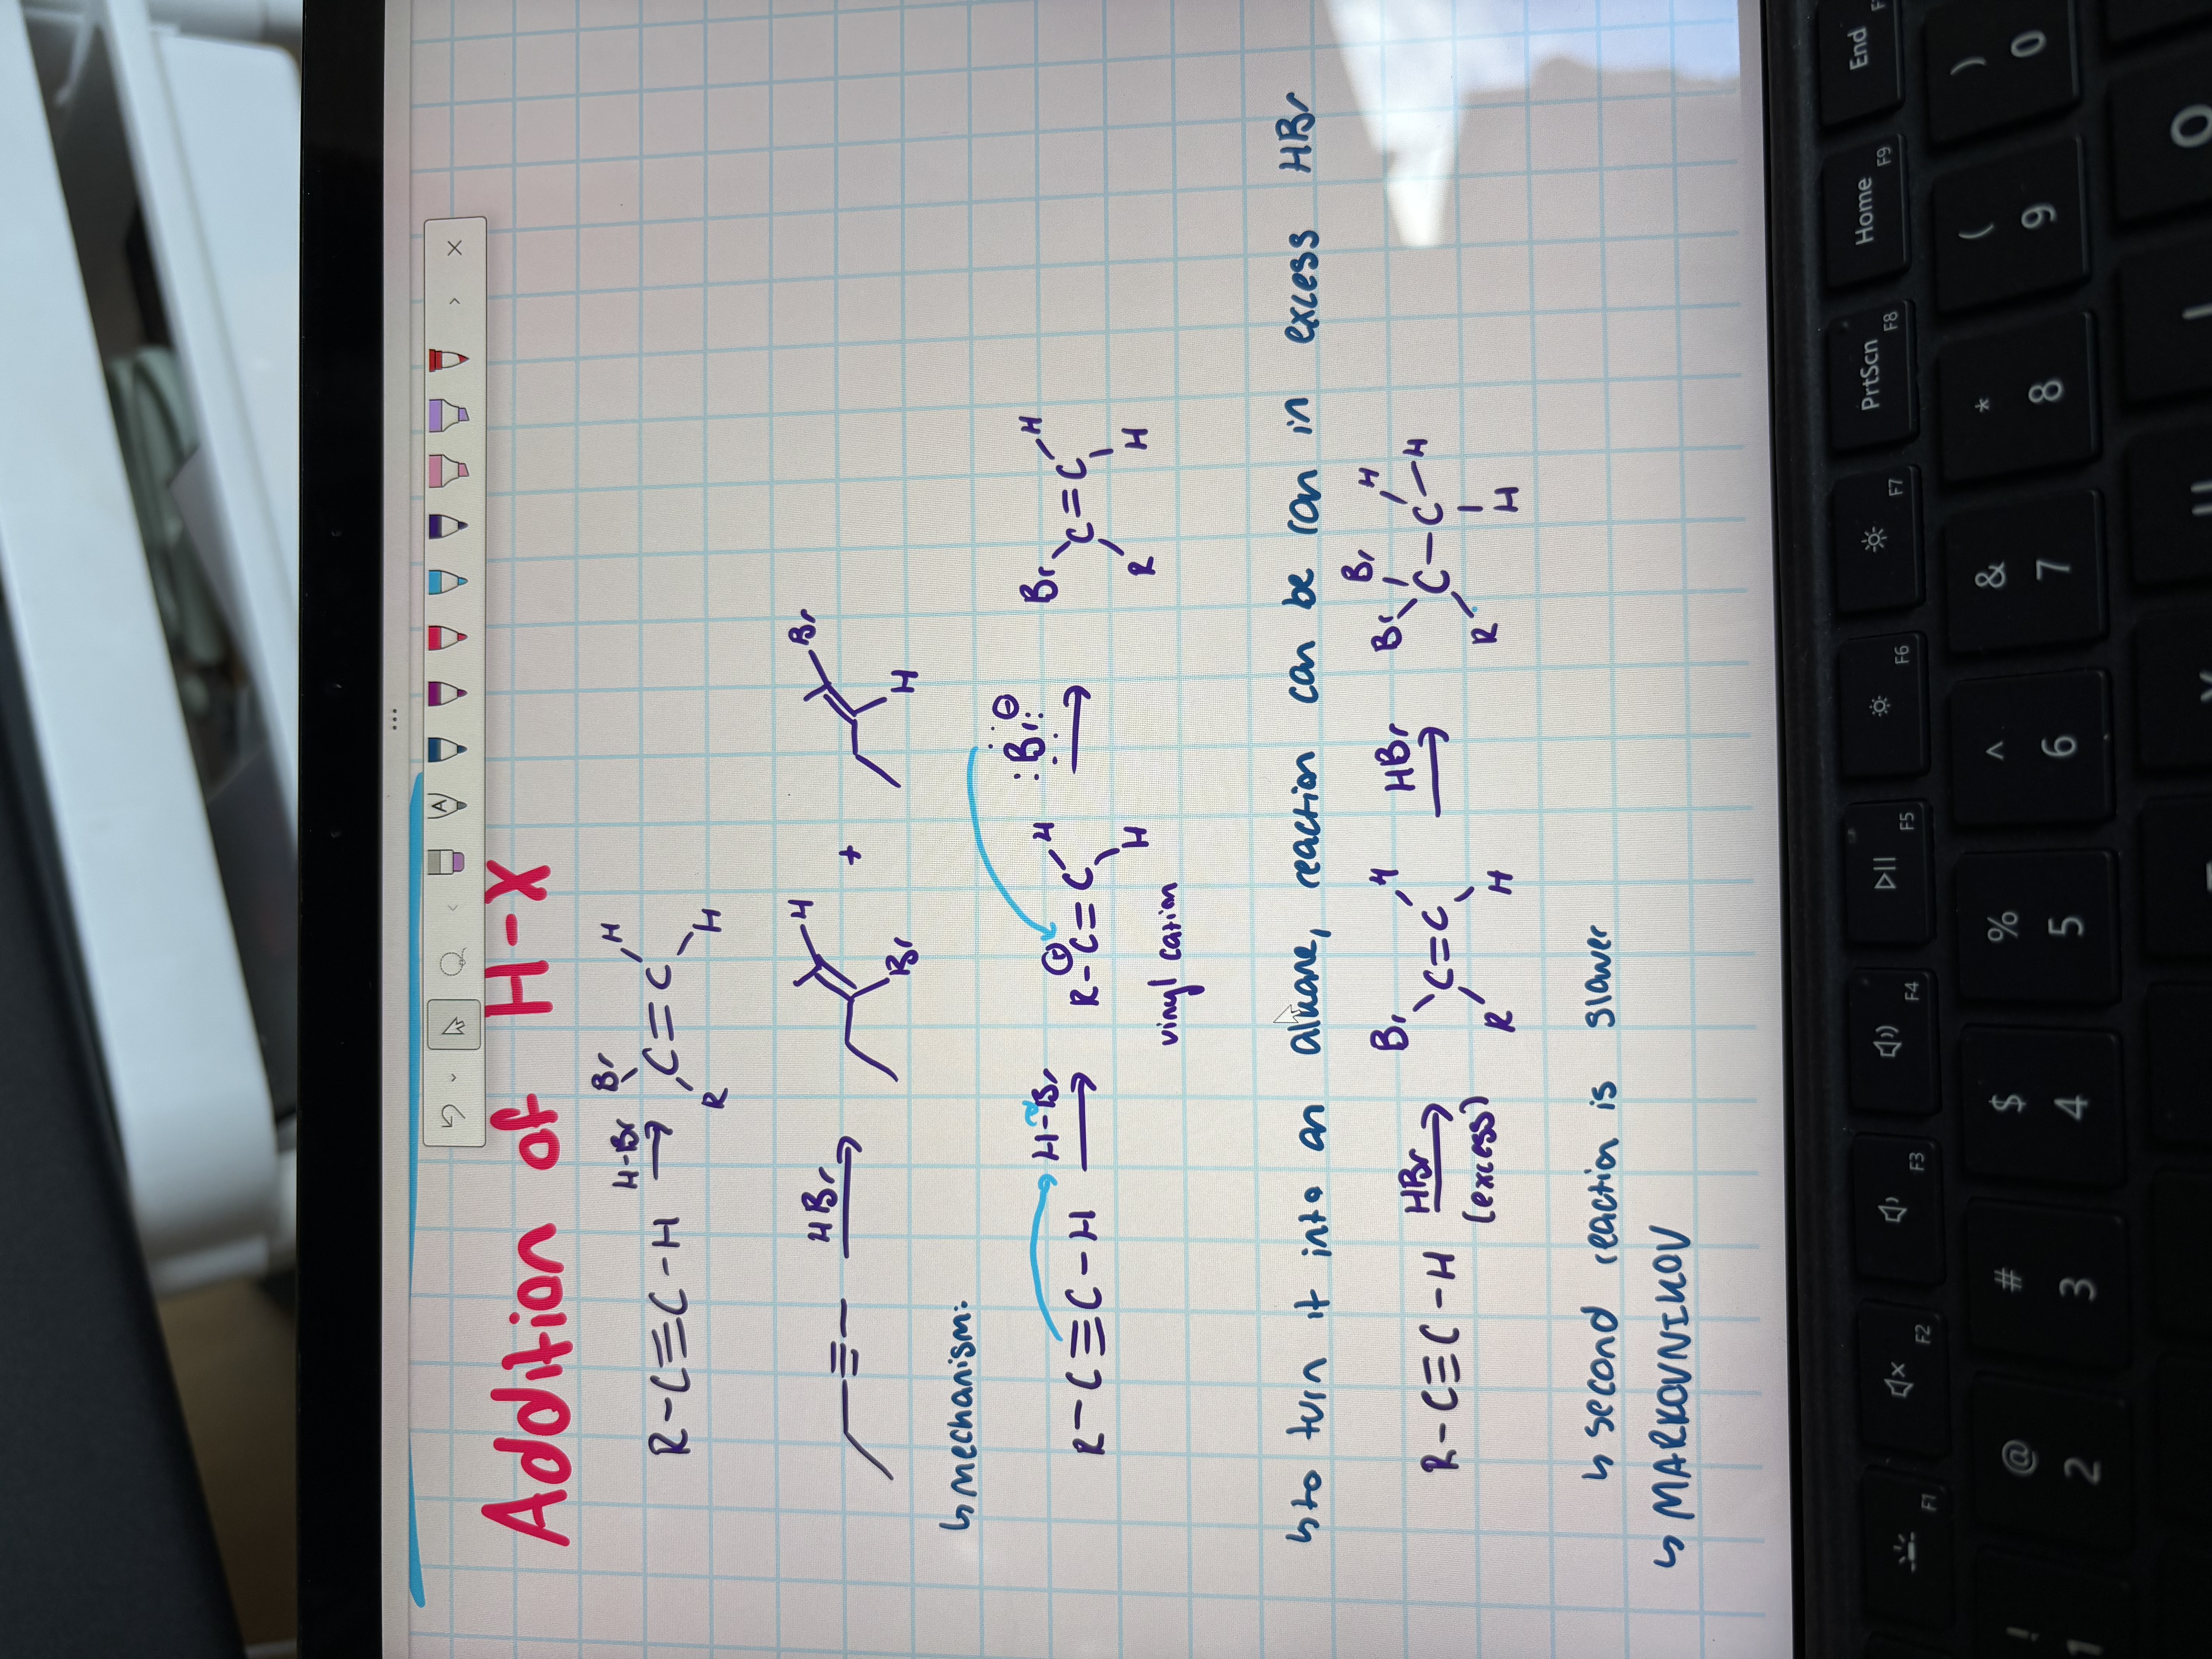 Addition of H-X
R-C≡C-H H-Br Br H C=C R H
HBr H Br + Br H
↳mechanism:
R-C≡C-H H-Br R-C=C H H ⊕ :Br: ⊖ Br H C=C R H
vinyl cation
↳to turn it into an alkane, reaction can be ran in excess HBr
R-C≡C-H HBr (excess) Br H C=C R H HBr Br Br H C-C-H R H
↳ second reaction is slower
↳ MARKOVNIKOV
F1 F2 F3 F4 F5 F6 F7 PrtScn F8 Home F9 End
! 1 @ 2 # 3 $ 4 % 5 ^ 6 & 7 * 8 ( 9 ) 0